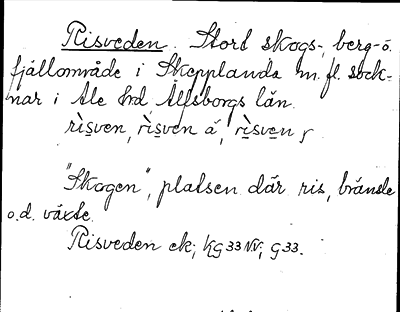 Risveden. Stort skogs-, berg- o.
fjällområde i Skepplanda m. fl. sock-
nar i Ale hd, Älfsborgs län.
rìsven, rìsven á, rìsven
"Skogen", platsen där ris, bränsle
o.d. växte.
Risveden ek; KG33NV; G33.